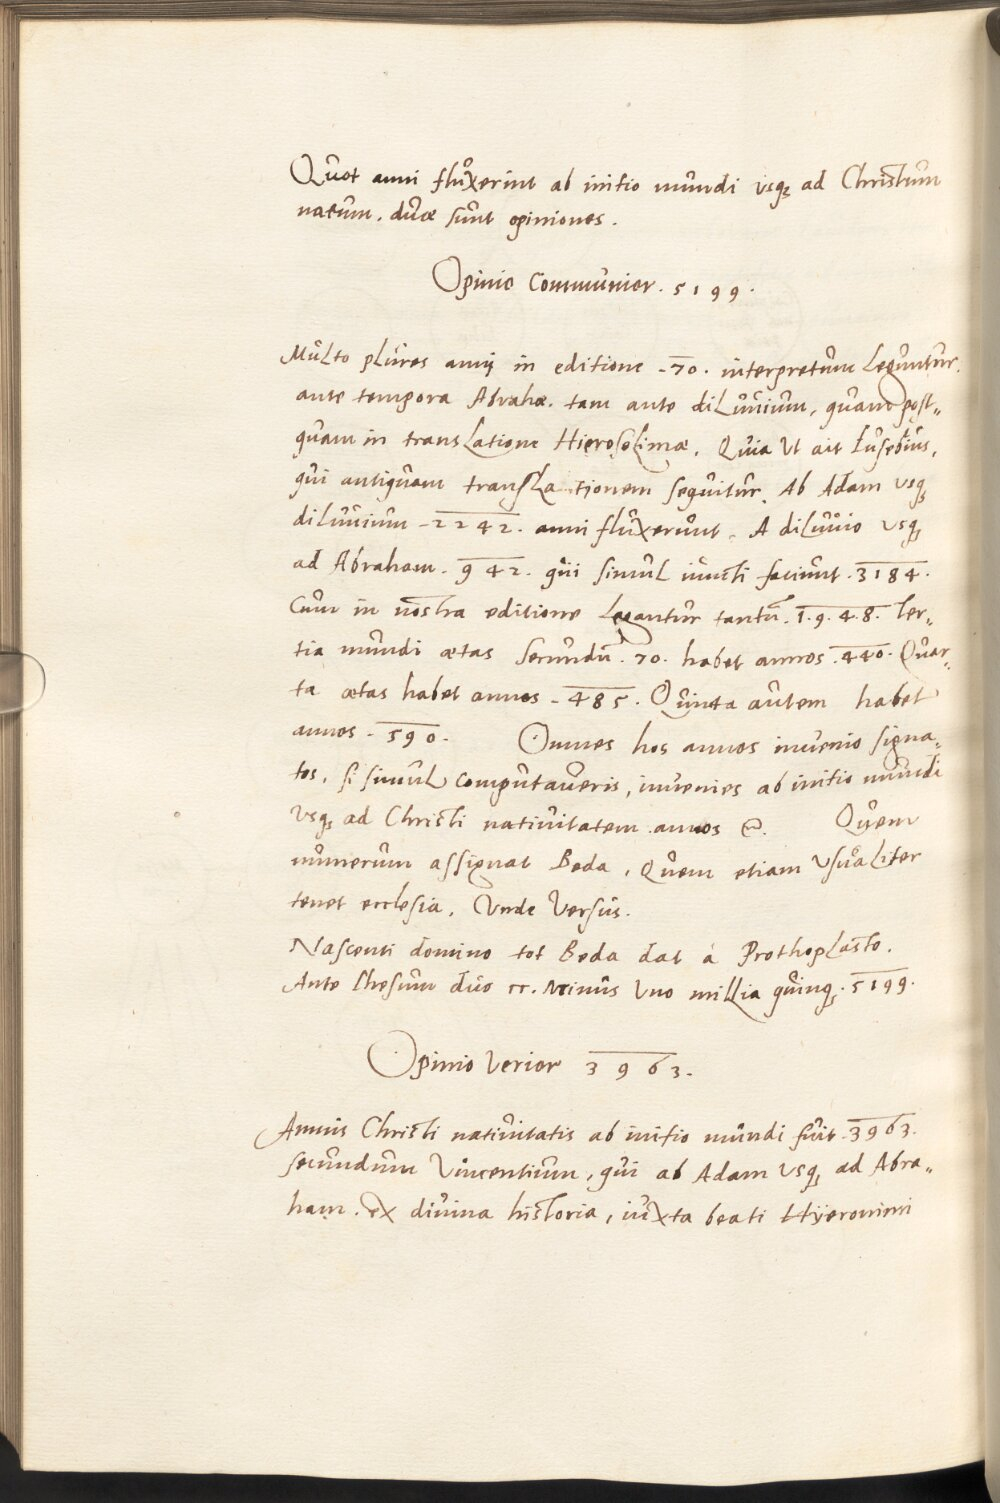 Quot anni fluxerint ab initio mundi usq; ad Christum
natum. duæ sunt opiniones.
Opinio Communior. 5199.
Multo plures annij in editione .70. interpretum leguntur.
ante tempora Abrahæ. tam ante diluvium, quam post„
quam in translatione Hierosolimæ. Quia Ut ait Eusebius,
qui antiquam translationem sequitur. Ab Adam usq;
diluvium .2242. anni fluxerunt. A diluvio usq;
ad Abraham. 942. qui simul iuncti faciunt .3184.
Cum in nostra editione legantur tantū. 1.9.4.8. Ter„
tia mundi ætas secundū .70. habet annos .440. Quar„
ta ætas habet annos .485. Quinta autem habet
annos .590. Omnes hos annos invenio signa„
tos, si simul computaveris, invenies ab initio mundi
Usq; ad Christi nativitatem annos. Quem
numerum assignat Beda, Quem etiam usualiter
tenet ecclesia. Unde Versus.
Nascenti domino tot Beda dat á Prothoplasto.
Ante Ihesum duo cc. Minus Uno millia quinq;. 5199.
Opinio Verior 3963.
Annus Christi nativitatis ab initio mundi fuit .3963.
secundum Vincentium, qui ab Adam usq; ad Abra„
ham. ex divina historia, iuxta beati Hÿeronimi